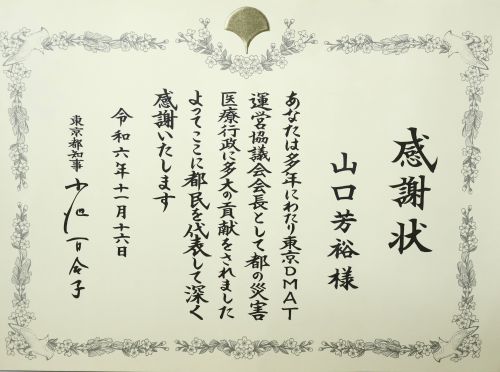 感謝状
山口芳裕様
あなたは多年にわたり東京DMAT
運営協議会会長として都の災害
医療行政に多大の貢献をされました
よってここに都民を代表して深く
感謝いたします
令和六年十一月十六日
東京都知事 小池百合子